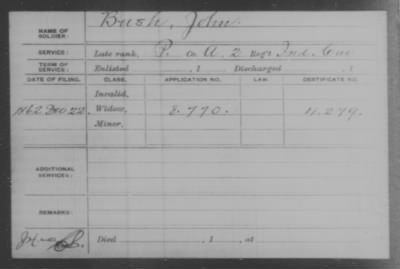 NAME OF SOLDIER: Bush, John
SERVICE: Late rank, P. Co. A, 2 Reg't Ind. Cav
TERM OF SERVICE: Enlisted , 1 Discharged , 1
DATE OF FILING. CLASS. APPLICATION NO. LAW. CERTIFICATE NO.
Invalid,
1862 Dec 22. Widow, 8.770. 4.279.
Minor,
ADDITIONAL SERVICES:
REMARKS:
Died , 1 , at